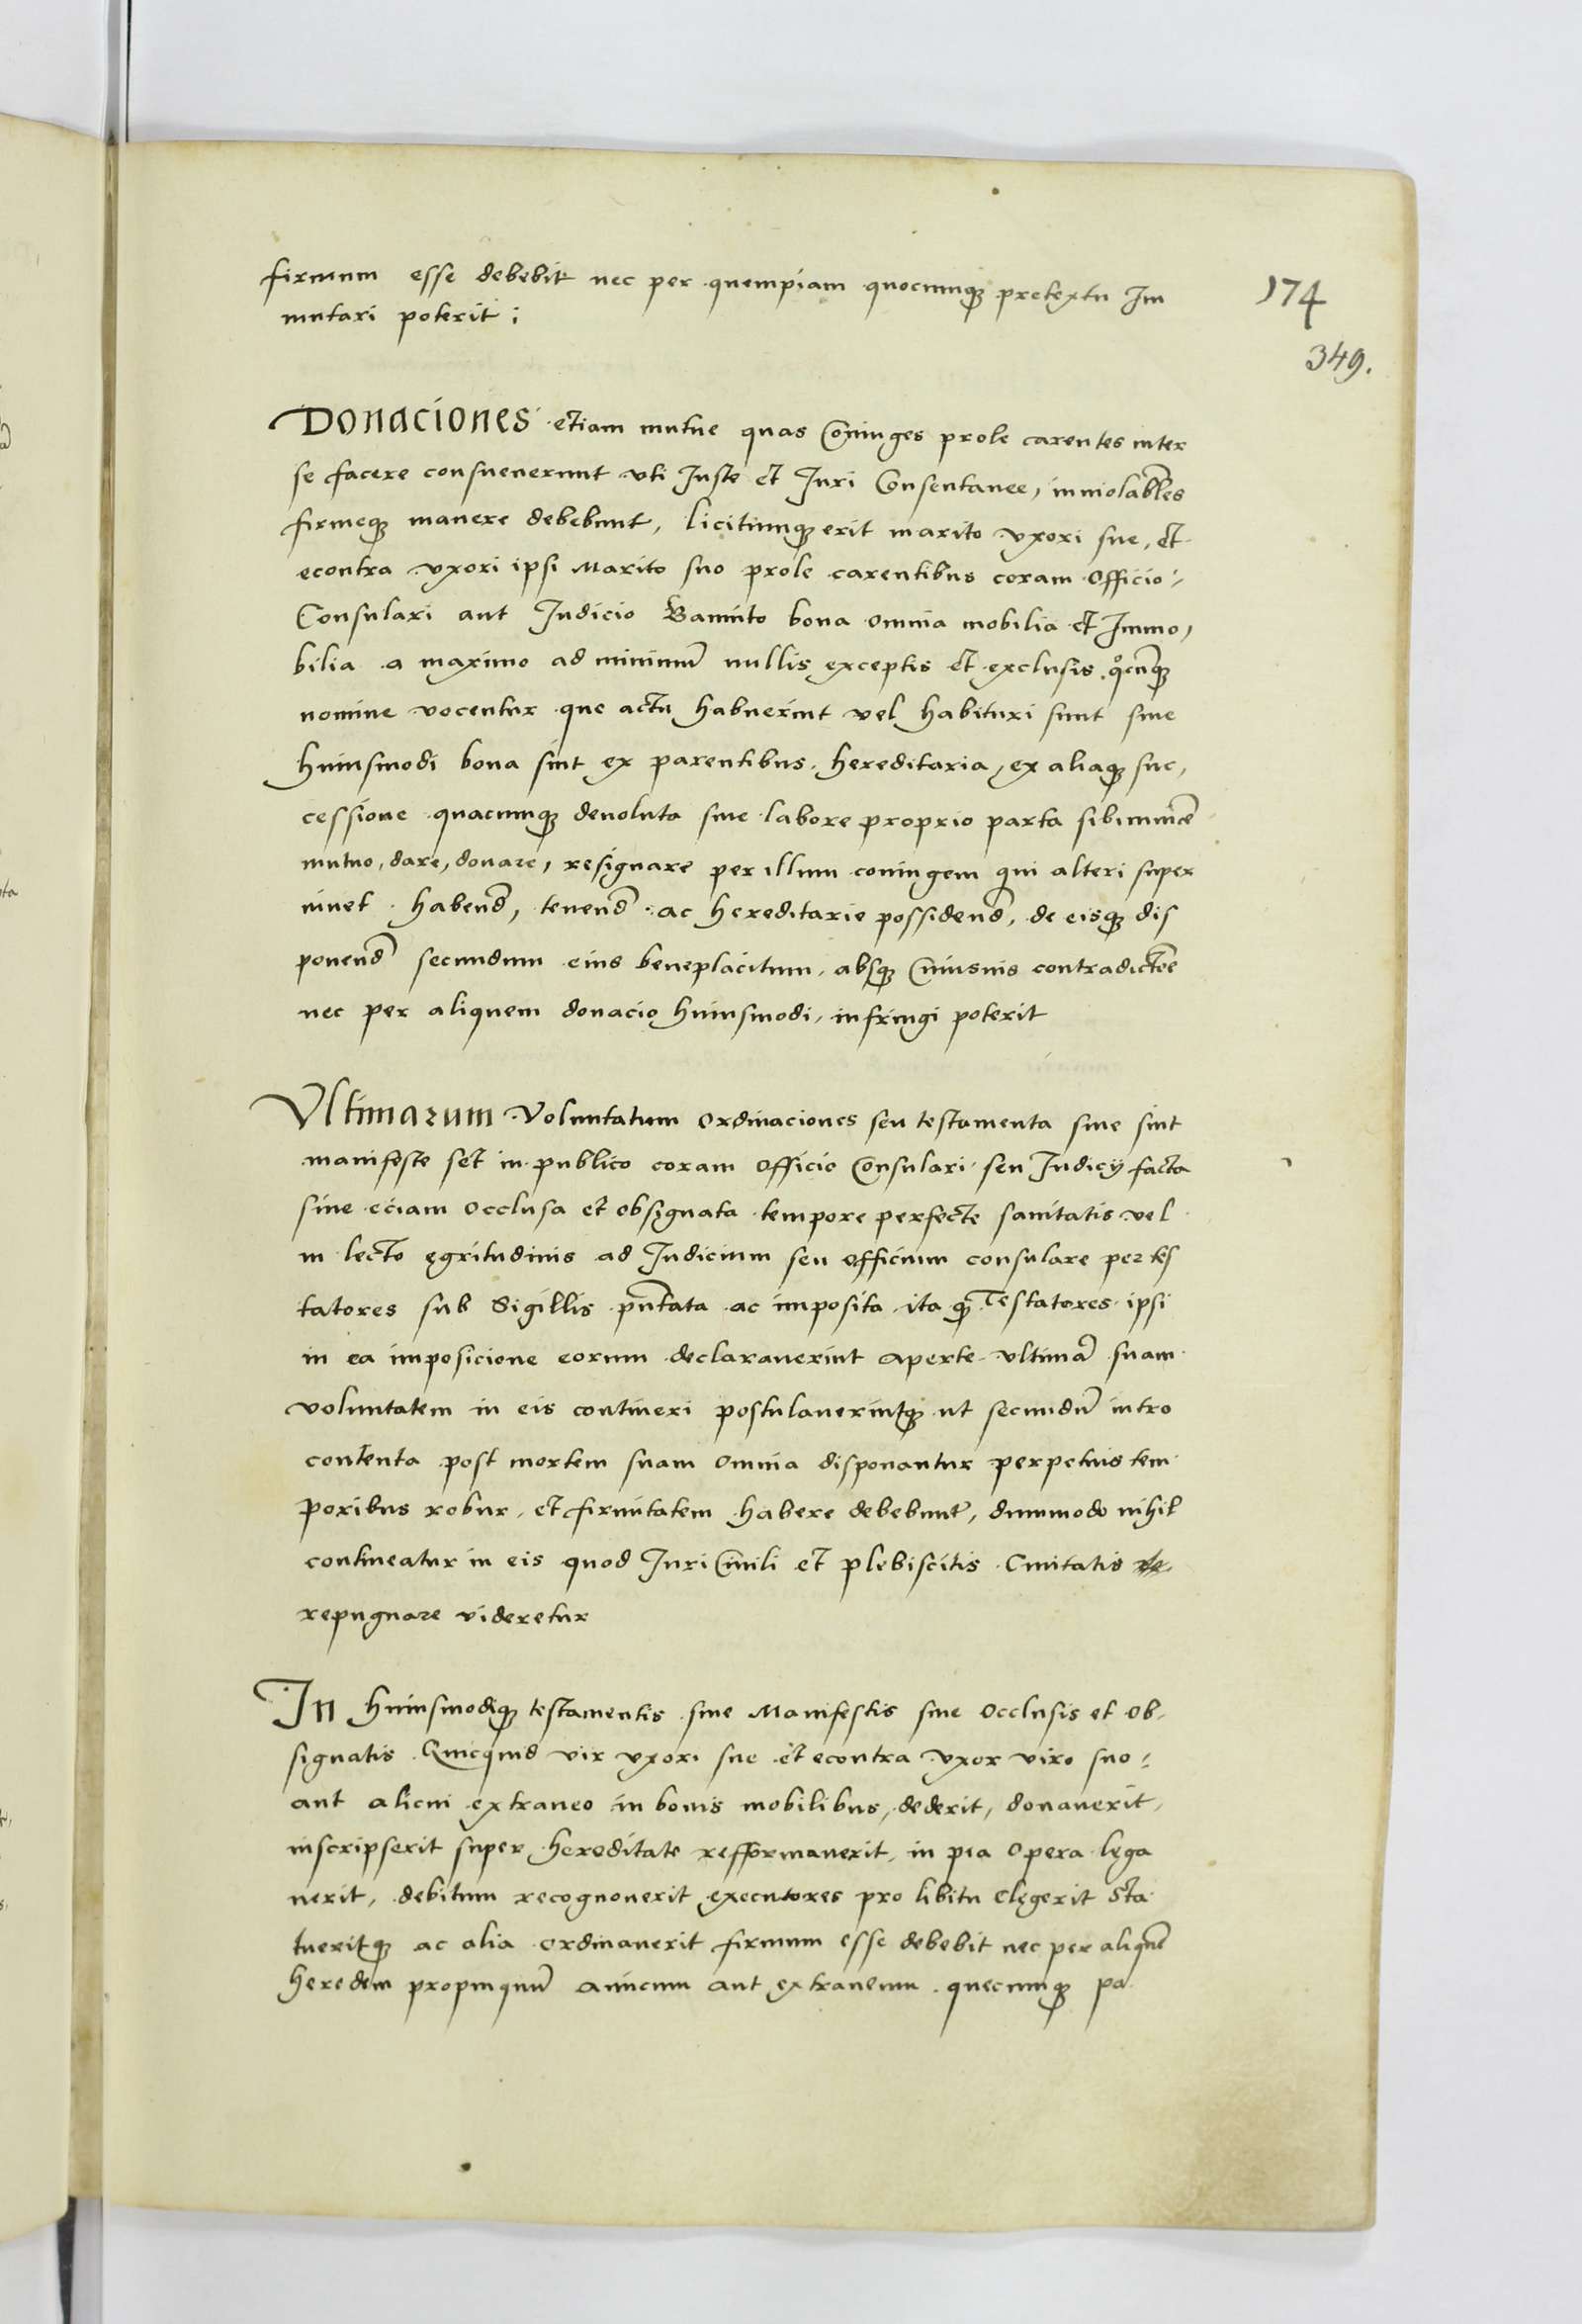 firmum esse debebit nec per quempiam quocumq̃ pretextu Im
174
mutari poterit :
349.
Donaciones etiam mutue quas Coniuges prole carentes inter
se facere consueuerunt vti Juste et Juri Consentanee, inuiolabˀles
firmeq̃ manere debebunt, licitumq̃ erit marito vxori sue, et
econtra vxori ipsi Marito suo prole carentibus coram Officio
Consulari aut Judicio Bannito bona omnia mobilia et Immo,
bilia a maximo ad minimũ nullis exceptis et exclusis qͦcũq̃
nomine vocentur que actu habuerint vel habituri sunt siue
huiusmodi bona sint ex parentibus hereditaria, ex aliaq̃ suc,
cessione quacumq̃ deuoluta siue labore proprio parta sibiinuicẽ
mutuo, dare, donare, resignare per illum coniugem qui alteri super
uiuet habend̃, tenend̃ ac hereditarie possidend̃, de eisq̃ dis
ponend̃ secundum eius beneplacitum, absq̃ Cuiusuis contradictõe
nec per aliquem donacio huiusmodi, infringi poterit
Vltimarum Voluntatum Ordinaciones seu testamenta siue sint
manifeste set in publico coram Officio Consulari seu Judicij facta
siue eciam Occlusa et obsignata tempore perfecte sanitatis vel
in lecto egritudinis ad Judicium seu Officium consulare per tes
tatores sub Sigillis pñtata ac imposita ita q̃ Testatores ipsi
in ea imposicione eorum declarauerint aperte vltimã suam
voluntatem in eis contineri postulauerintq̃ ut secundũ intro
contenta post mortem suam omnia disponantur perpetuis tem
poribus robur, et firmitatem habere debebunt, dummodo nihil
contineatur in eis quod Juri Ciuili et plebiscitis Ciuitatis
repugnare videretur
In huiusmodiq̃ testamentis siue Manifestis siue Occlusis et Ob,
signatis Quicquid vir vxori sue et econtra vxor viro suo
aut alicui extraneo in bonis mobilibus, dederit, donauerit,
inscripserit super hereditate refformauerit, in pia Opera lega
uerit, debitum recognouerit executores pro libitu elegerit Sta
tueritq̃ ac alia ordinauerit firmum esse debebit nec per aliquẽ
heredem propinquũ amicum aut extraneum quecumq̃ pa